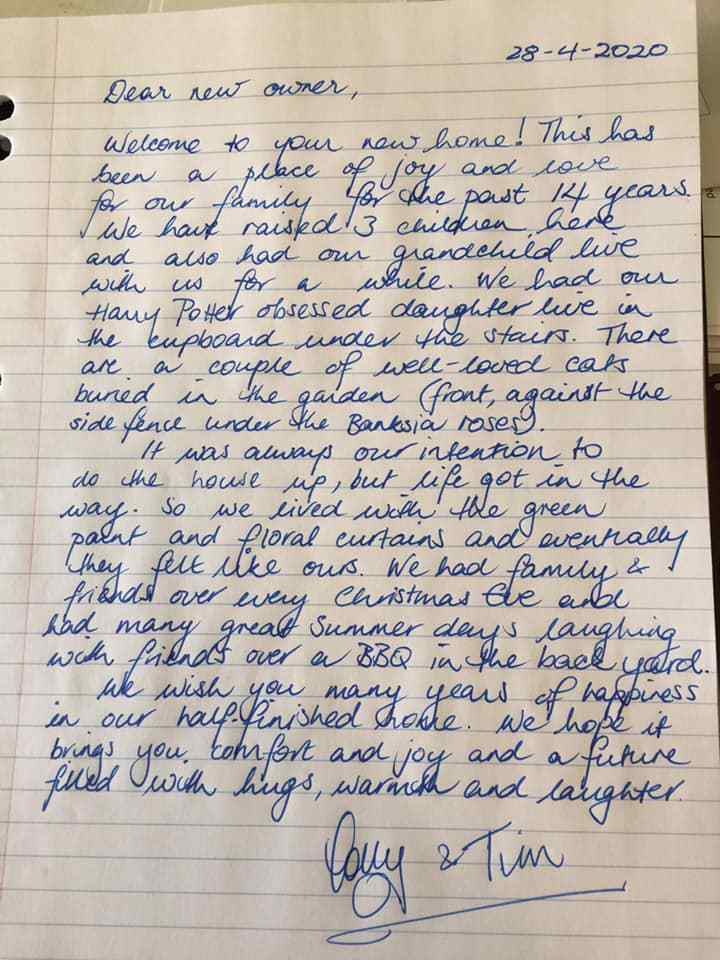 28-4-2020
Dear new owner,
Welcome to your new home! This has
been a place of joy and love
for our family for the past 14 years.
We have raised 3 children here
and also had our grandchild live
with us for a while. We had our
Harry Potter obsessed daughter live in
the cupboard under the stairs. There
are a couple of well-loved cats
buried in the garden (front, against the
side fence under the Banksia roses).
It was always our intention to
do the house up, but life got in the
way. So we lived with the green
paint and floral curtains and eventually
they felt like ours. We had family &
friends over every Christmas Eve and
had many great Summer days laughing
with friends over a BBQ in the back yard.
We wish you many years of happiness
in our half-finished home. We hope it
brings you comfort and joy and a future
filled with hugs, warmth and laughter.
& Tim